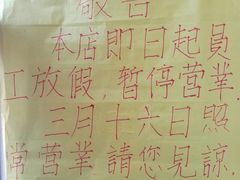 敬告
本店即日起員
工放假,暫停營業
三月十六日照
常營業請您見諒.